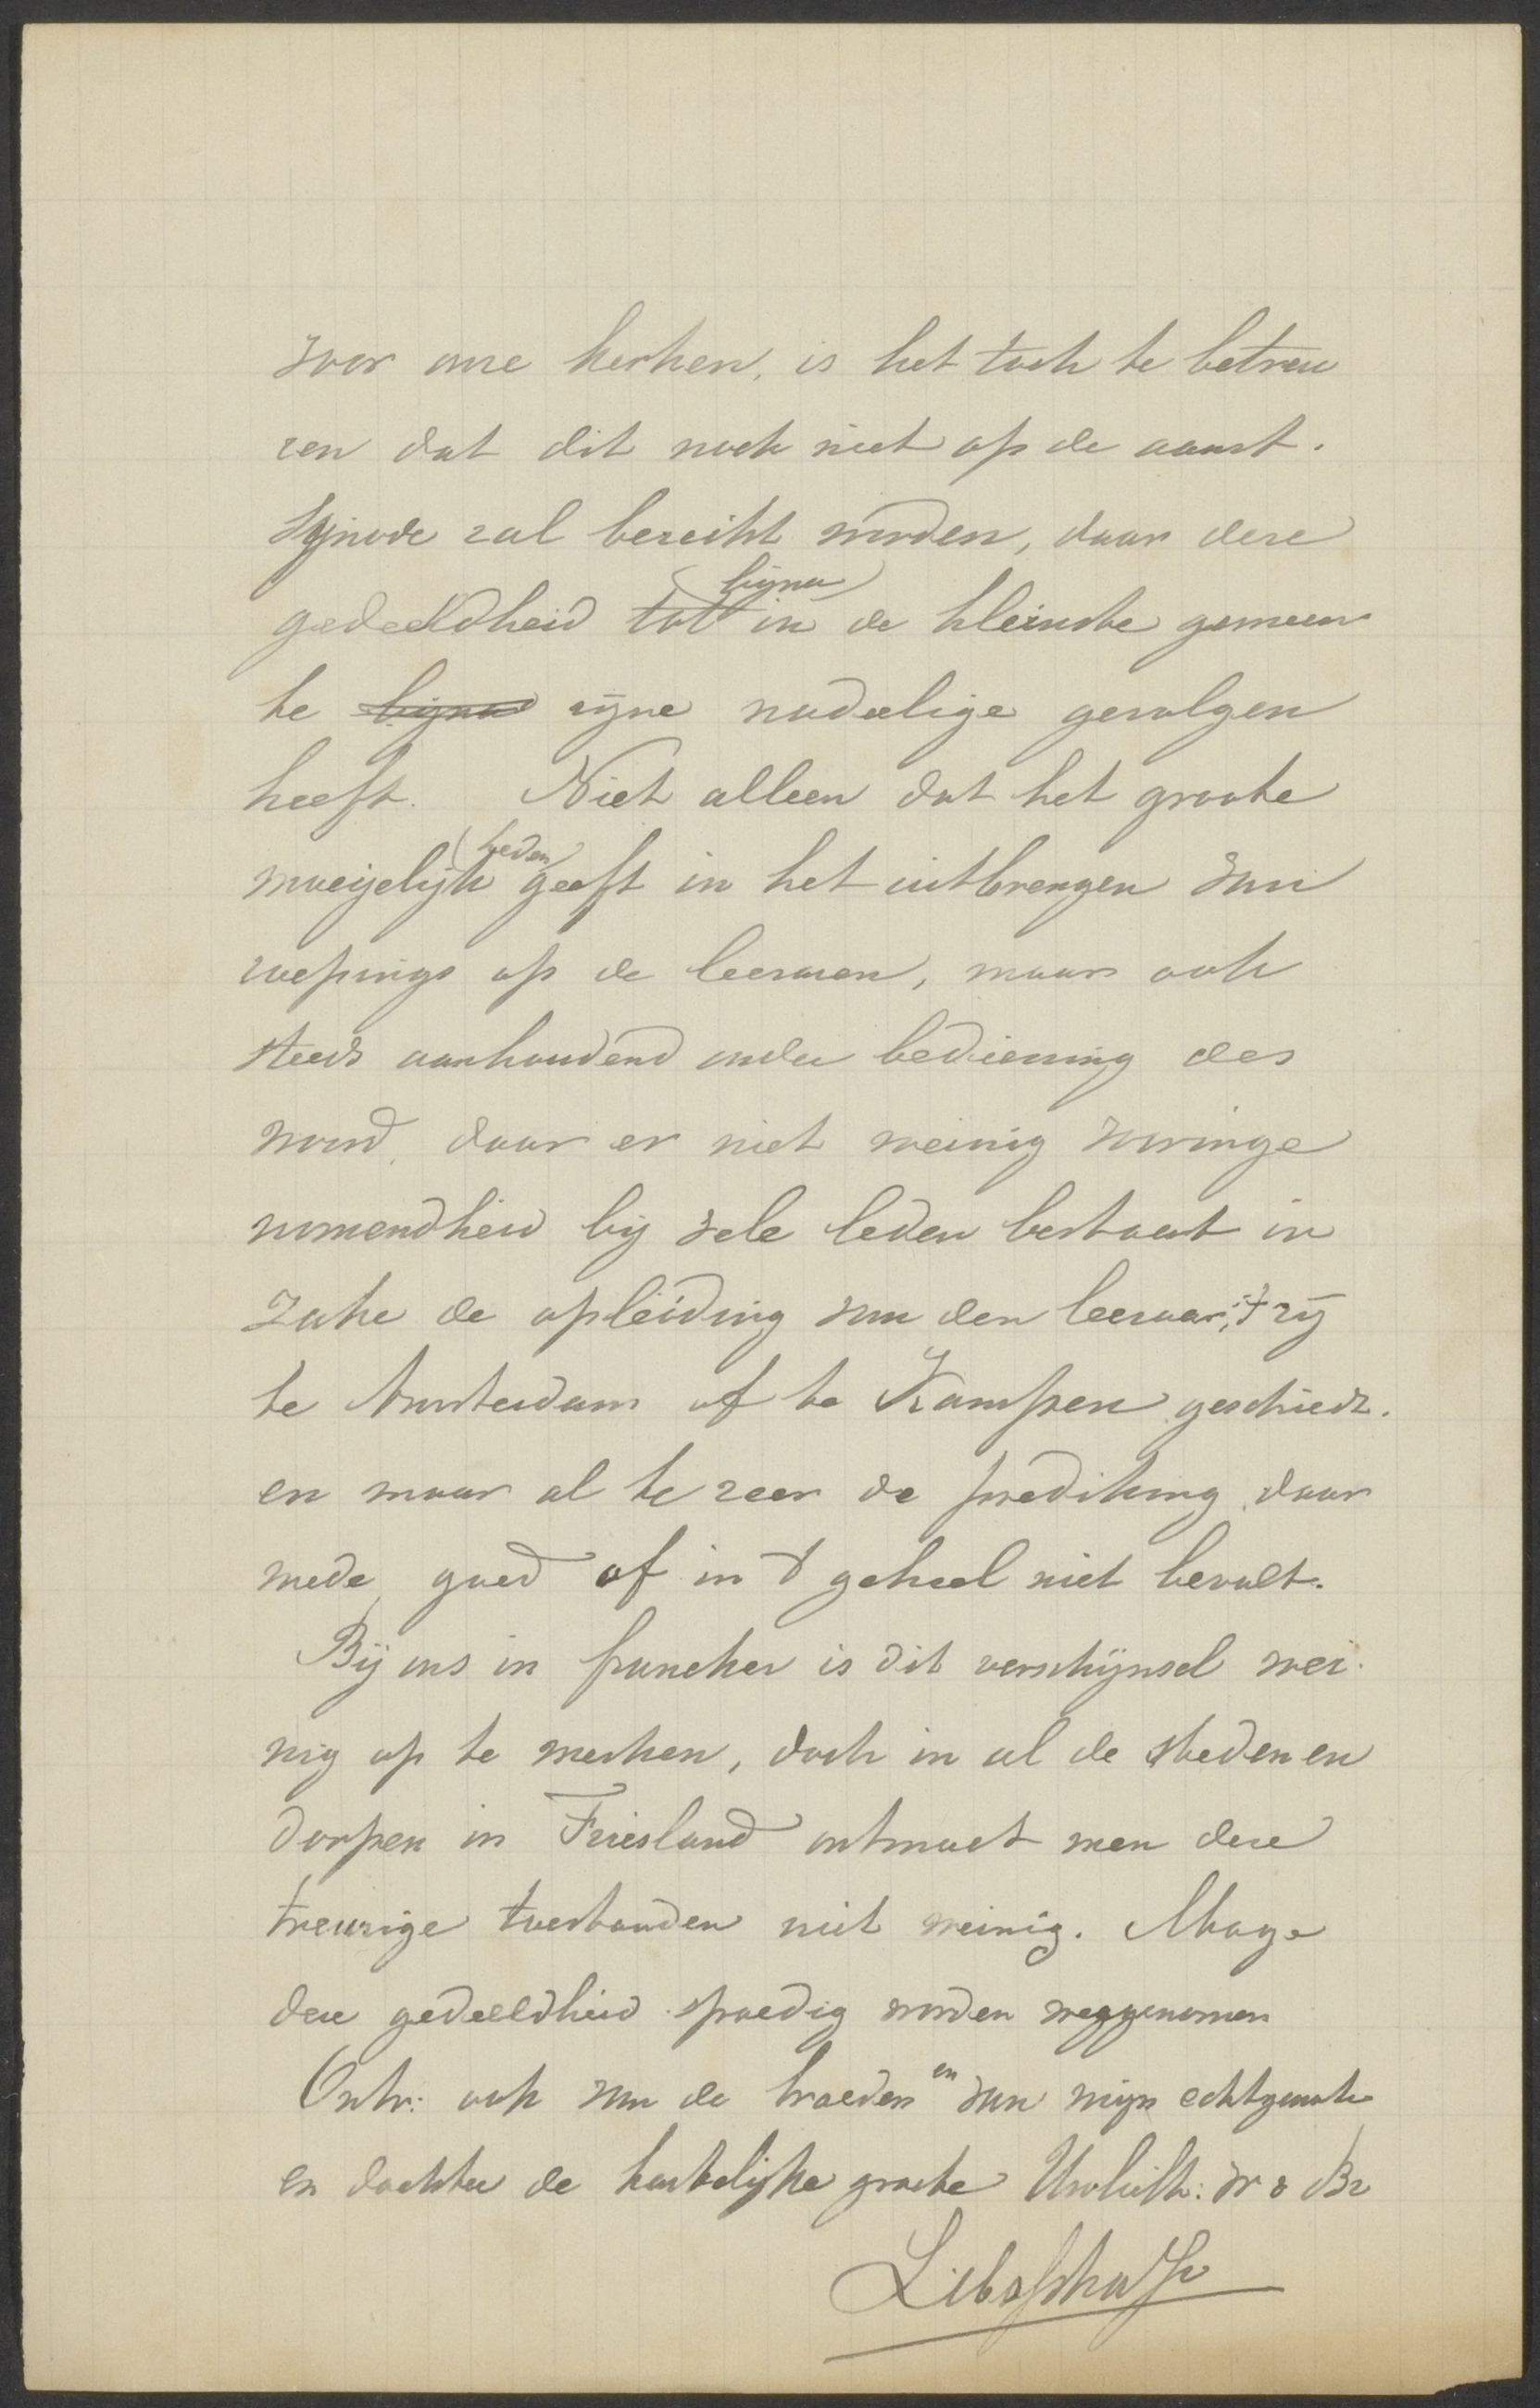 voor onze kerken, is het toch te betreu
ren dat dit noch niet op de aanst.
Synode zal bereikt worden, daar deze
gedeeldheid tot bijna in de kleinste gemeen
te bijna zijne nadeelige gevolgen
heeft. Niet alleen dat het groote
moeijelijkheden geeft in het uitbrengen van
roepings op de leeraren, maar ook
steeds aanhoudend onder bediening des
woord, daar er niet weinig vooringe
nomendheid bij vele leden bestaat in
zake de opleiding van den leeraar, 't zij
te Amsterdam of te Kampen geschiedt.
en maar al te zeer de prediking daar
mede goed of in 't geheel niet bevalt.
Bij ons in franeker is dit verschijnsel wei
nig op te merken, doch in al de steden en
dorpen in Friesland ontmoet men deze
treurige toestanden niet weinig. Moge
deze gedeeldheid spoedig worden weggenomen
Ontv: ook van de broeders en van mijn echtgenote
en dochter de hartelijke groete Uwliefh: vr & Br